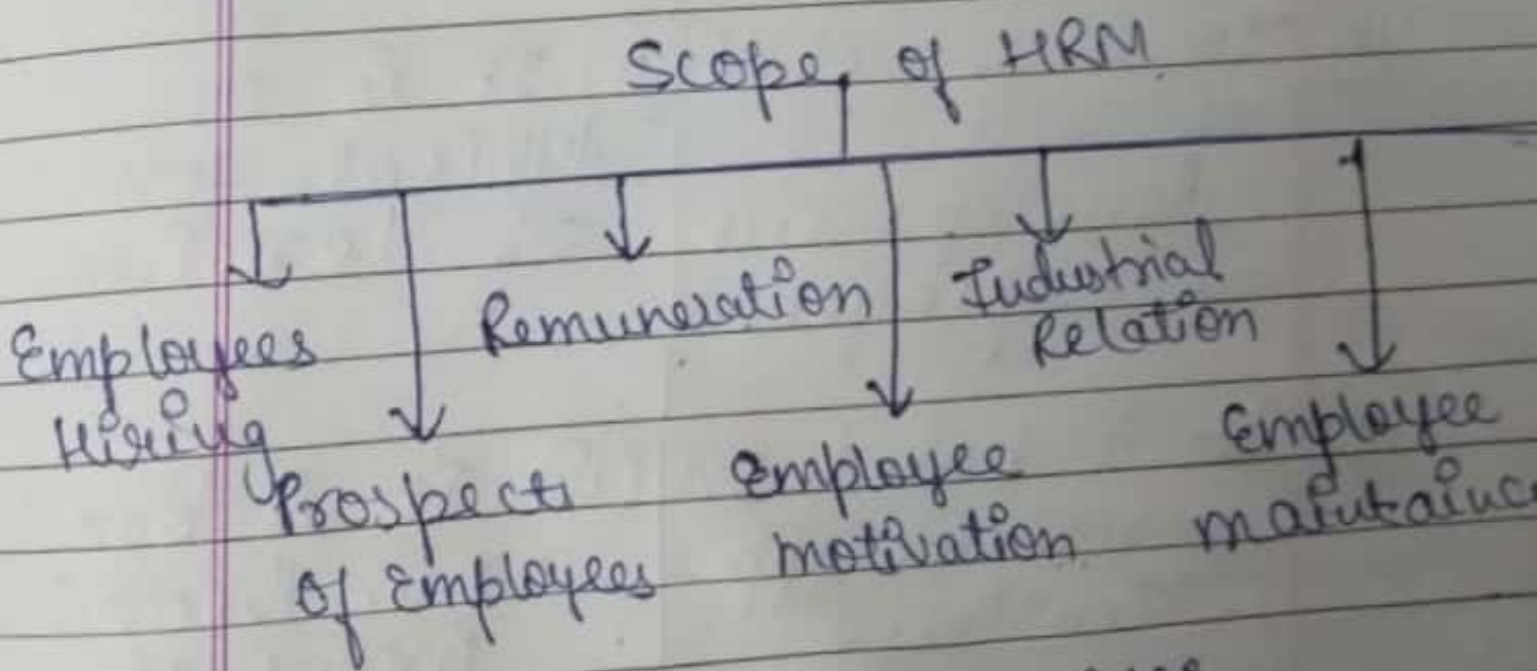 Scope of HRM
Employees
Hiring
Prospects
of Employees
Remuneration
employee
motivation
Industrial
Relation
Employee